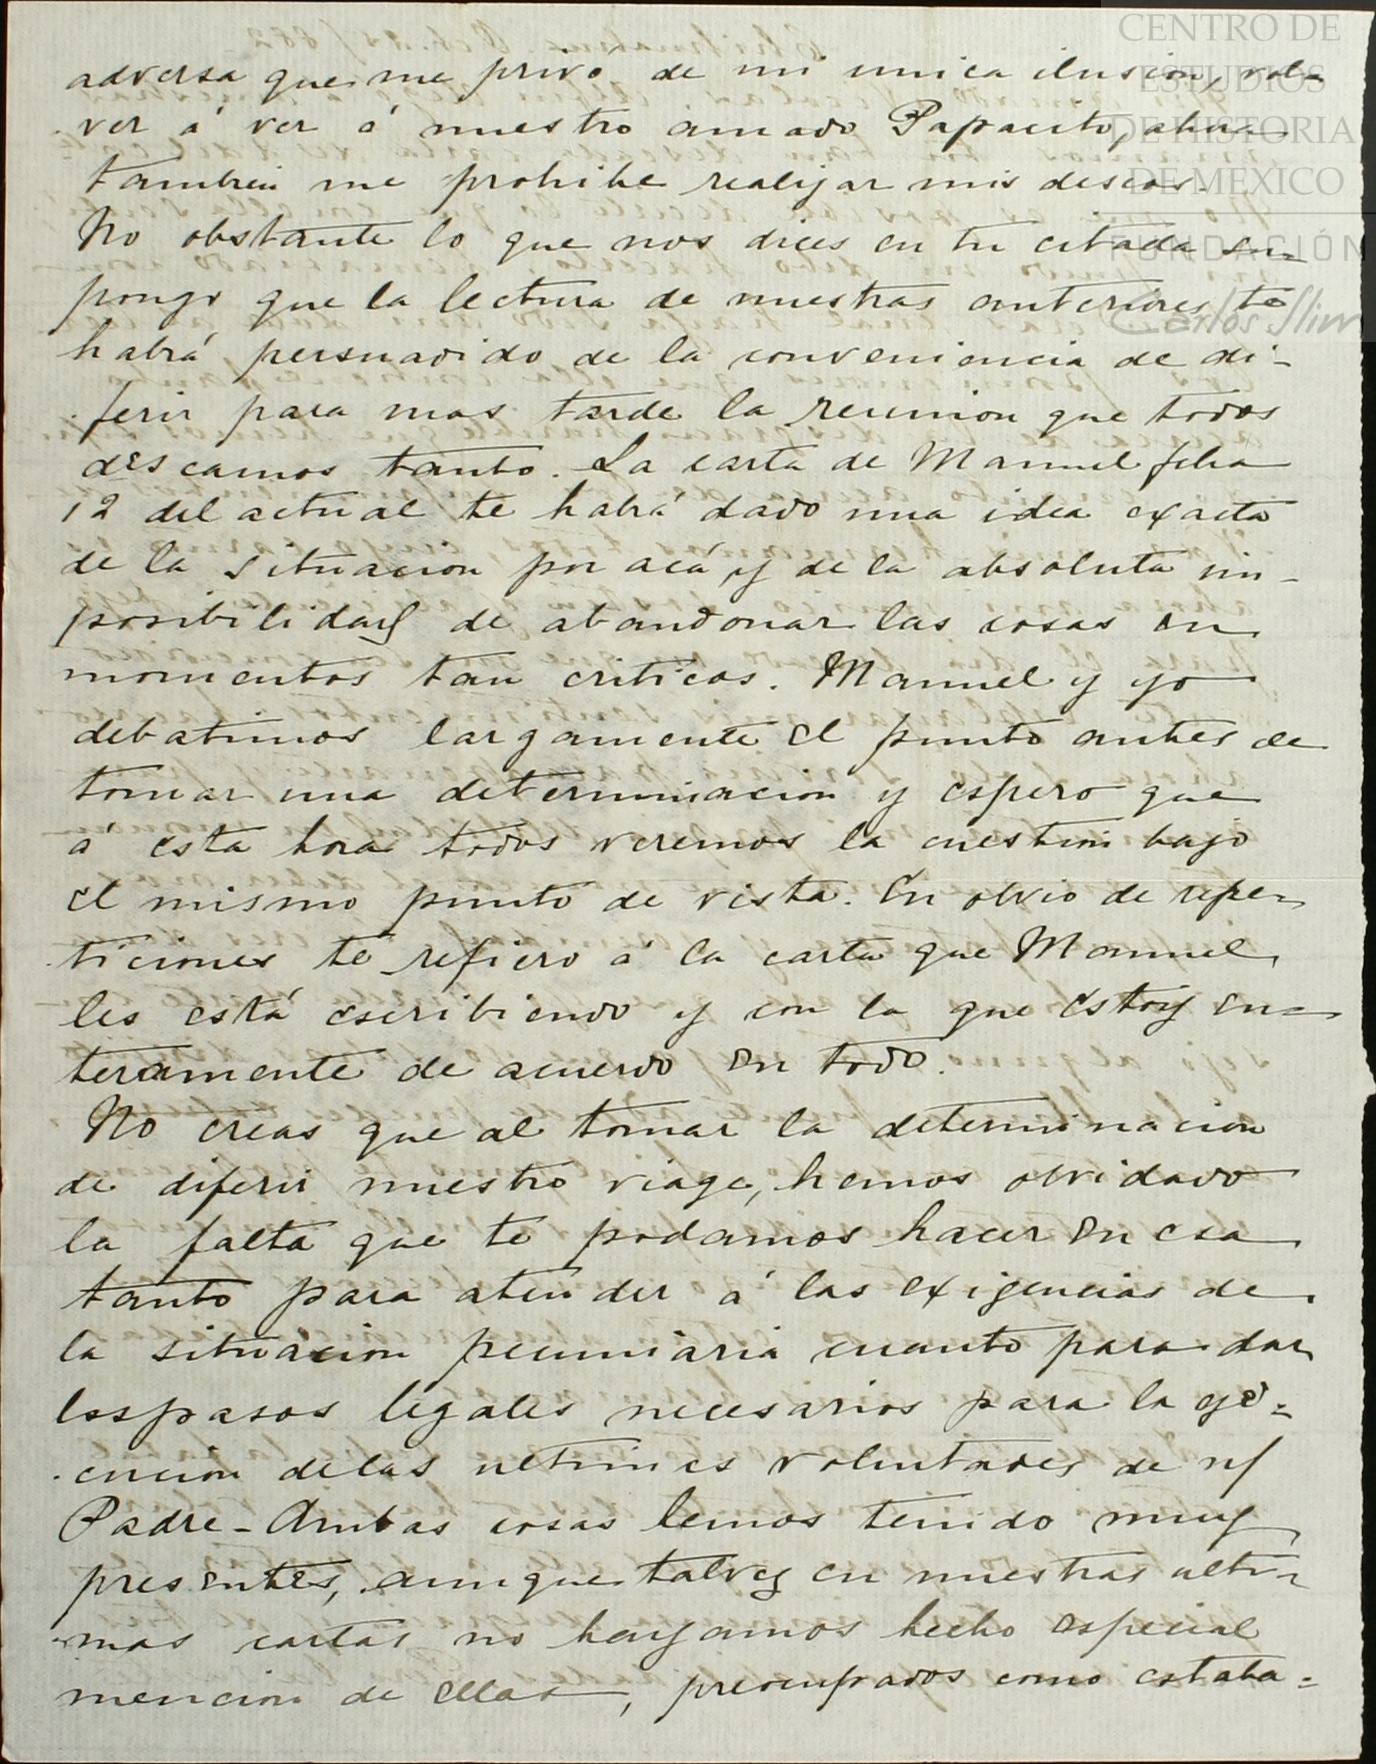 CENTRO DE
ESTUDIOS
DE HISTORIA
DE MÉXICO
FUNDACIÓN
Carlos Slim
adversa que me privó de mi unica ilusion, vol-
ver á ver á nuestro amado Papacito, ahora
tambien me prohibe realizar mis deseos.
No obstante lo que nos dices en tu citada su-
pongo que la lectura de nuestras anteriores te
habrá persuadido de la conveniencia de di-
ferir para mas tarde la reunion que todos
deseamos tanto. La carta de Manuel fcha
12 del actual te habrá dado una idea exacta
de la situacion por acá, y de la absoluta im-
posibilidad de abandonar las cosas en
momentos tan criticos. Manuel y yo
debatimos largamente el punto antes de
tomar una determinacion y espero que
á esta hora todos veremos la cuestion bajo
el mismo punto de vista. En obvio de repe-
ticiones te refiero á la carta que Manuel
les está escribiendo y con la que estoy en-
teramente de acuerdo en todo.
No creas que al tomar la determinacion
de diferir nuestro viage, hemos olvidado
la falta que te podamos hacer en esa
tanto para atender á las exigencias de
la situacion pecuniaria cuanto para dar
los pasos legales necesarios para la eje=
cucion de las ultimas voluntades de n/
Padre - Ambas cosas hemos tenido muy
presentes, aunque talvez en nuestras ulti-
mas cartas no hayamos hecho especial
mencion de ellas, preocupados como estaba=